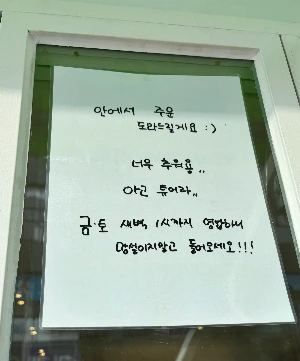 안에서 주문
도와드릴게요 :)
너무 추워용..
아고 추어라..
금·토 새벽 1시까지 영업하니
망설이지않고 들어오세요!!!